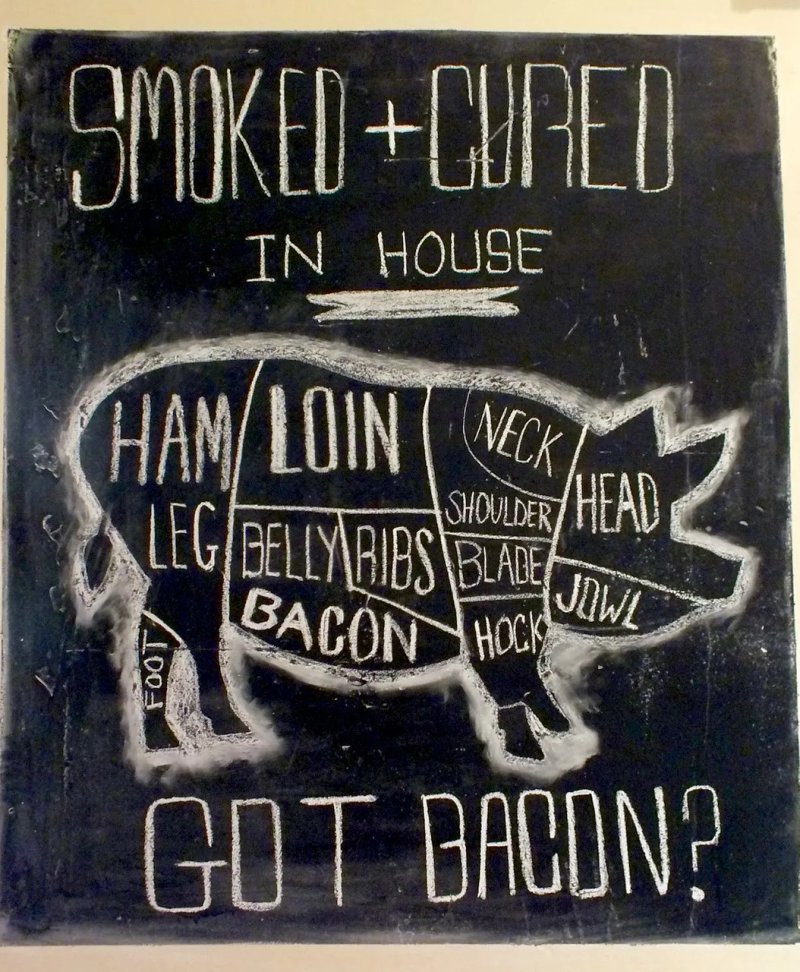 SMOKED + CURED
IN HOUSE
HAM
LEG
FOOT
LOIN
BELLY
RIBS
BACON
NECK
SHOULDER
BLADE
HOCK
HEAD
JOWL
GOT BACON?